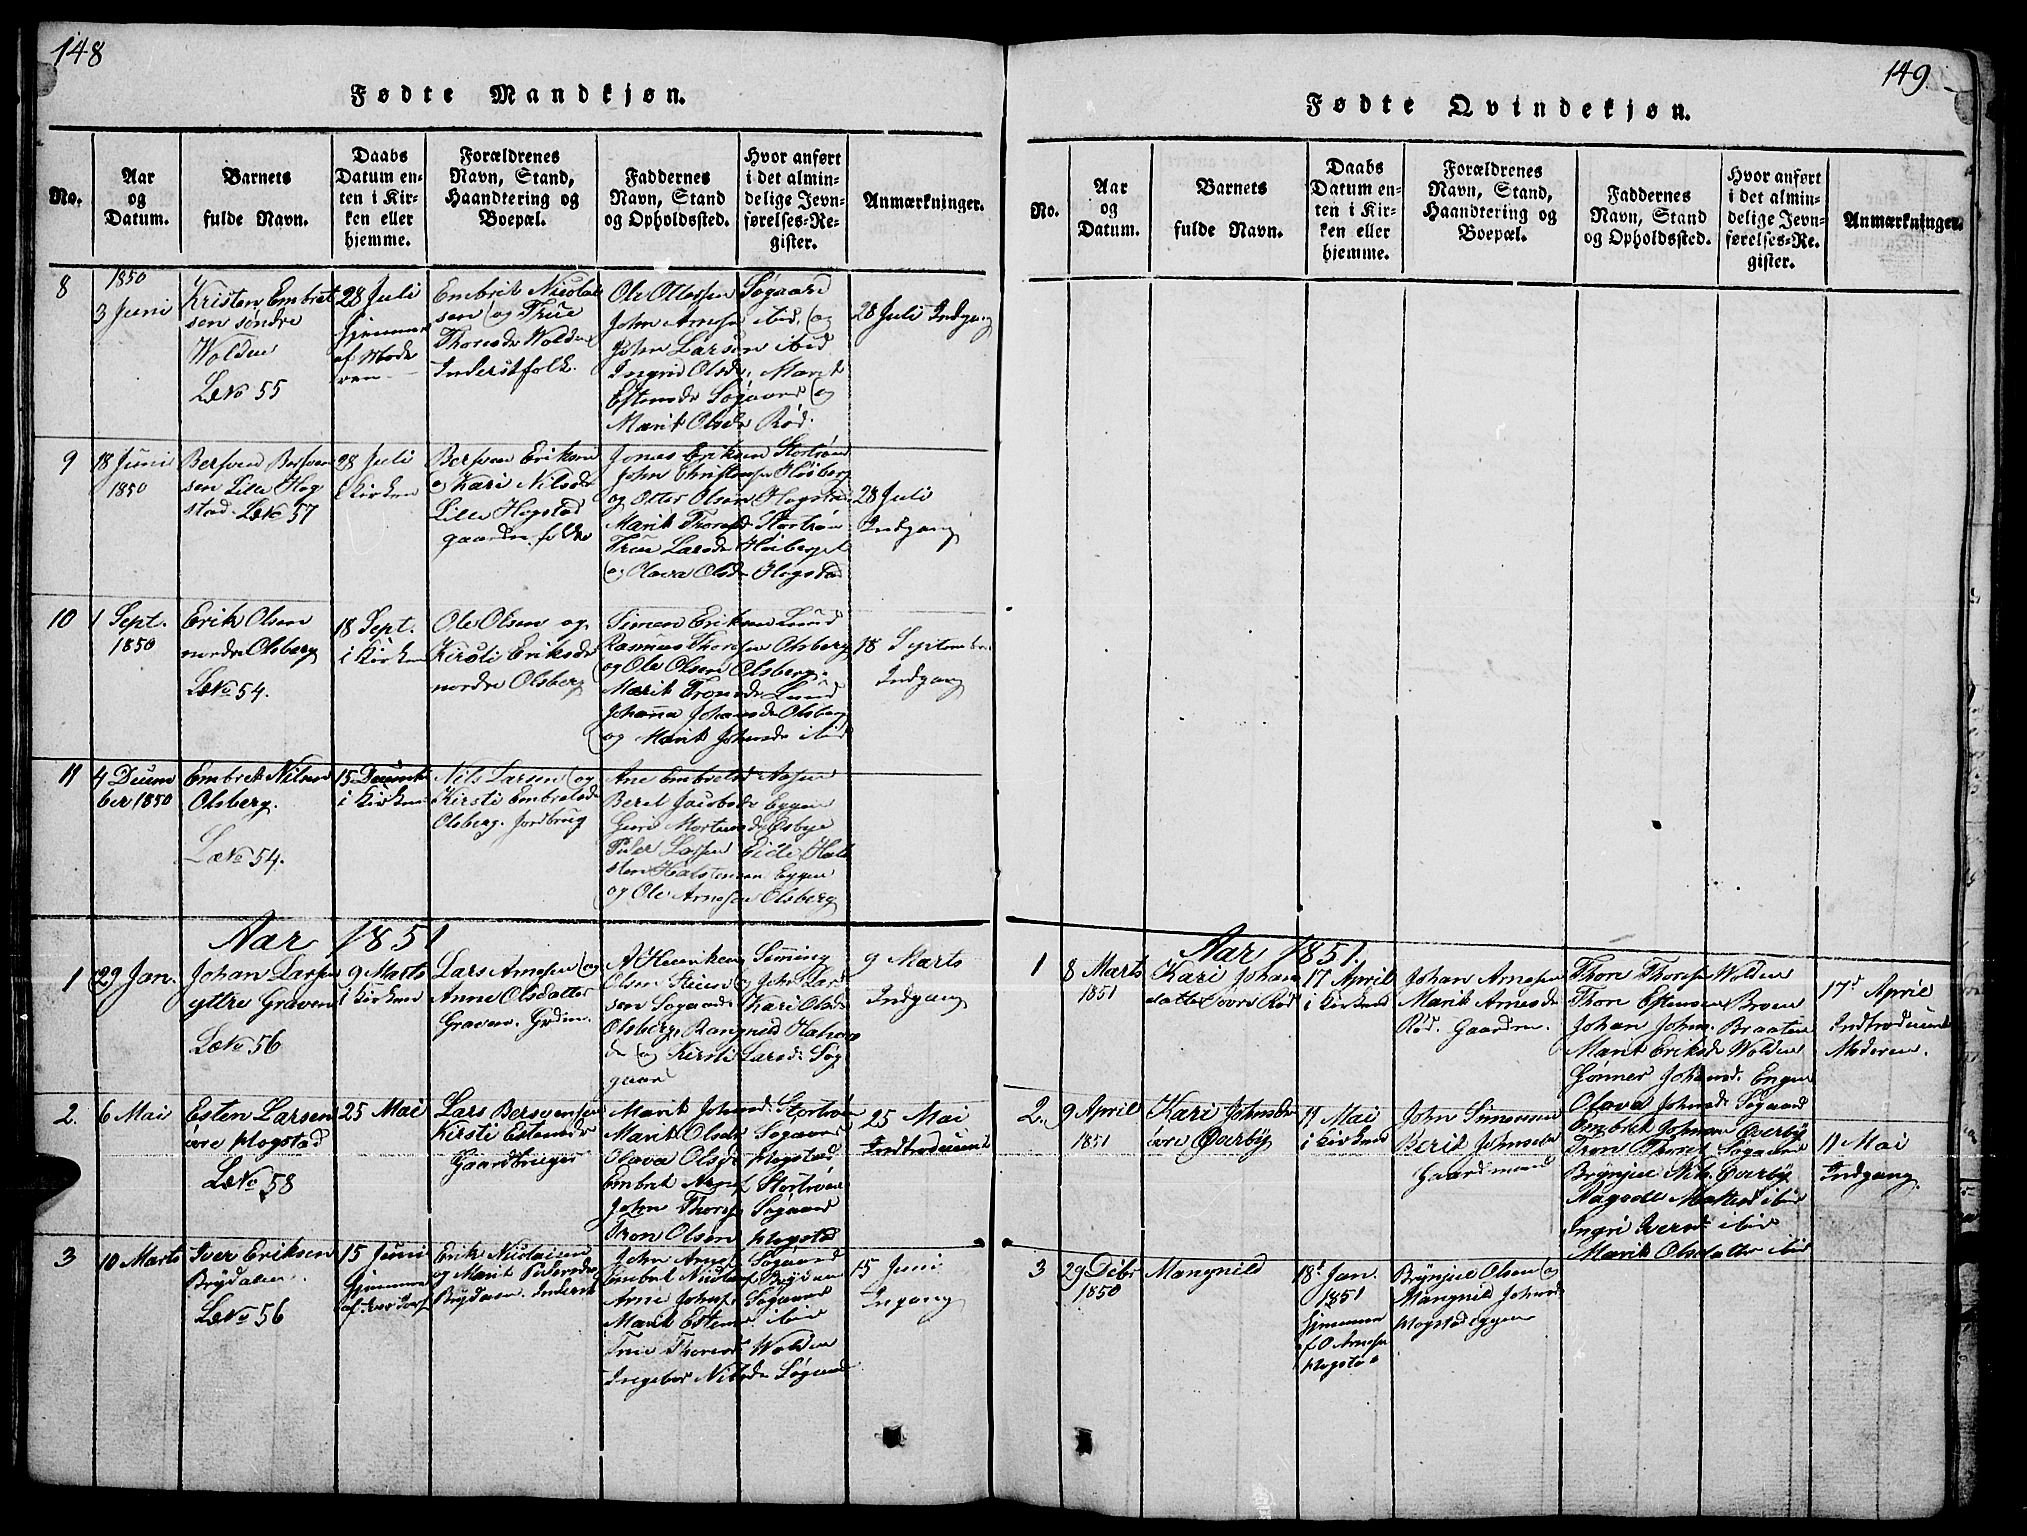 148
Fødte Mandkjøn.
No.
Aar
og
Datum.
Barnets
fulde Navn.
Daabs
Datum en-
ten i Kir-
ken eller
hjemme.
Forældrenes
Navn, Stand,
Haandtering og
Boepæl.
Faddernes
Navn, Stand
og Opholdssted.
Hvor anført
i det almin-
delige Jevn-
førelses-Re-
gister.
Anmærkninger.
8
1850
3 Juni
Kristen Embret
sen søndre
Wolden
LNo 55
28 Juli
hjemme
af Mode
ren
Embret Nicolai
sen og True
Thoresdr Wolden
Inderstfolk.
Ole Ottersen Søgaard
John Arnesen ibid, og
John Larsen ibid
Ingrid Olsdr. Marit
Estensdr Søgaard og
Marit Olsdr Rød.
28 Juli Indgang
9
18 Juni
1850
Bersven Bersven
sen Lille Hog
stad. LNo 57
28 Juli
i Kirken
Bersven Eriksen
og Kari Nilsdr
Lille Hogstad
Jonas Eriksen Stortrøn
John Christensen Høiberg
og Otter Olsen Hogstad
Marit Thoresdr Stortrøn
True Larsdr Høiberget
og Olava Olsdr Hogstad
28 Juli
Indgang
10
1 Sept.
1850
Erik Olsen
nordre Olsberg
LNo 54.
18 Sept.
i Kirken
Ole Olsen og
Kirsti Eriksdr
nordre Olsberg
Simen Eriksen Lund
Rasmus Thoresen Olsberg
og Ole Olsen Olsberg.
Marit Tronsdr Lund
Johanna Johansdr Olsberg
og Marit Johnsdr ibid
18 September
Indgang
11
4 Decem
ber 1850
Embret Nilsen
Olsberg.
LNo 54.
15 Decemb
i Kirken
Nils Larsen og
Kirsti Embretsdr
Olsberg. Jordbrug
Ane Embretsd Aasen
Beret Jacobsdr Eggen
Guri Mortensdr Østbye
Peder Larsen Eide Hal
sten Halstensen Eggen
og Ole Arnesen Olsberg
Aar 1851
1
29 Jan.
Johan Larsen
yttre Graven
LNo 56
9 Marts
i Kirken
Lars Arnesen og
Anne Olsdatter
Graven.
Olsen Steien og John Lar
sen Søgaard Kari Olsdr
Olsberg Rangnild Halvor
dr og Kirsti Larsdr Søg
gaard
9 Marts
Indgang
2.
6 Mai
Esten Larsen
øvre Hogstad
LNo 58
25 Mai
Lars Bersvensen
Kirsti Estensdr
Gaardbruger
Marit Johnsd. Stortrøen
Marit Olsdr Søgaard
Olava Olsdr Hogstad
Embret Arnes. Stortrøen
John Thores. Søgaard
Tron Olsen Hogstad
25 Mai
Indtroduceret
3
10 Marts
Iver Eriksen
Brydalen.
LNo 56
15 Juni
hjemme
Erik Nicolaisen
og Marit Pedersdr
Brydalen. Inderst
John Arnes. Søgaard
Embret Nicolais. Brydalen
Arne Johns. Søgaard
Marit Estensd ibid
True Thoresd. Wolden
Ingebor Nilsdr Søgaard
15 Juni
Ingang
149.
Fødte Qvindekjøn.
No.
Aar
og
Datum.
Barnets
fulde Navn.
Daabs
Datum en-
ten i Kir-
ken eller
hjemme.
Forældrenes
Navn, Stand,
Haandtering og
Boepæl.
Faddernes
Navn, Stand
og Opholdssted.
Hvor anført
i det almin-
delige Jevn-
førelses-Re-
gister.
Anmærkninger.
Aar 1851.
1
8 Marts
1851
Kari Johans
datter øvre Rød
17 April
i Kirken
Johan Arnesen
Marit Arnesdr
Rød. Gaarden.
Thore Thoresen Wolden
Thore Estensen Broen
Johan Johns. Braaten
Marit Eriksdr Wolden
Gønner Johansd. Engen
Olava Johnsdr Søgaard
17d April
Indtroduceret
Moderen.
2.
9 April
1851
Kari Johnsdr
øvre Øverby
11 Mai
i Kirken
John Simensen
Berit Johnsdr
Gaardmand
Embret Johnsen Øverby
Tron Thores. Søgaard
Brynjul Nils. Øverby
Ingri Iversd ibid
Marit Olsdatter ibid
11 Mai
Indgang.
3
29 Debr
1850
Mangnild
18d Jan.
1851
hjemme
af O Arnesen
Hogstad
Brynjul Olsen og
Mangnild Johnsd
Hogstadeggen